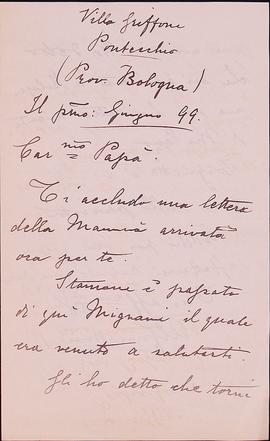 Villa Griffone
Pontecchio
(Prov. Bologna)
Il pmo: Giugno 99.
Carmo Papà.
Ti accludo una lettera
della Mammà arrivata
ora per te.
Stamane è passato
di quì Mignani il quale
era venuto a salutarti.
Gli ho detto che torni